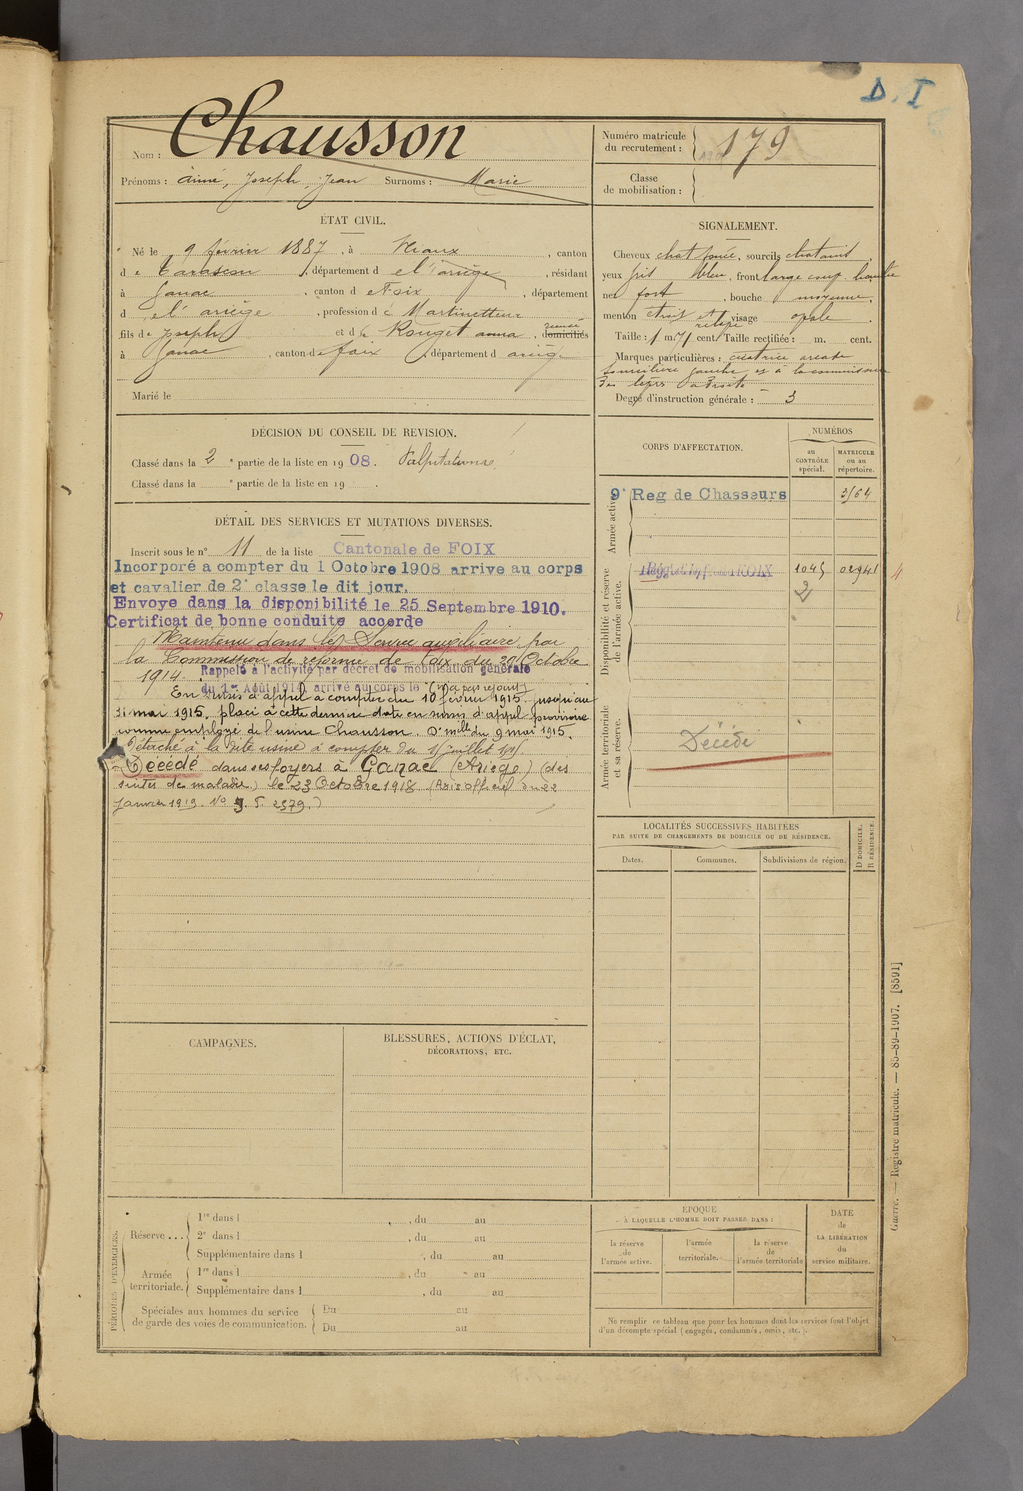 D. I
Chausson
Nom :
Prénoms : Aimé, Joseph, Jean Surnoms : Marie
Numéro matricule
du recrutement : 179
Classe
de mobilisation :
ÉTAT CIVIL.
Né le 9 février 1887, à , canton
de Tarascon, département de l'ariège, résidant
à Ganac, canton de Foix, département
de l'ariège, profession de Martinetteur
fils de Joseph et de Rouget anna, domiciliés
à Ganac, canton de foix, département d ariège
Marié le
SIGNALEMENT.
Cheveux chat foncé, sourcils chatains
yeux gris bleu, front large
nez fort, bouche moyenne,
menton étroit et visage ovale
Taille : 1 m. 71 cent. Taille rectifiée : m. cent.
Marques particulières : cicatrice arcade
sourcilière gauche et à la commissure
des lèvres à droite
Degré d'instruction générale : 3
DÉCISION DU CONSEIL DE REVISION.
Classé dans la 2 e partie de la liste en 1908. Palpitations
Classé dans la e partie de la liste en 19 .
DÉTAIL DES SERVICES ET MUTATIONS DIVERSES.
Inscrit sous le n° 11 de la liste Cantonale de FOIX
Incorporé a compter du 1 Octobre 1908 arrive au corps
et cavalier de 2e classe le dit jour.
Envoye dans la disponibilité le 25 Septembre 1910.
Certificat de bonne conduite accorde
Maintenu dans le Service auxiliaire par
la Commission de réforme de Foix du 20 Octobre
1914. Rappelé à l'activité par décret de mobilisation générale
du 1er Août 1914 arrivé au corps le (n'a pas rejoint)
En sursis d'appel à compter du 10 février 1915 jusqu'au
31 mai 1915. placé à cette dernière date en sursis d'appel provisoire
comme employé de l'usine Chausson. D. mlle du 9 mai 1915.
Détaché à la dite usine à compter du 15 juillet 1915.
Décédé dans ses foyers à Ganac (Ariège) (des
suites de maladie) le 23 Octobre 1918 (Avis officiel du 22
janvier 1919. N° 2379.)
CORPS D'AFFECTATION.
NUMÉROS
au
CONTRÔLE
spécial.
MATRICULE
ou au
répertoire.
Armée active.
9e Reg de Chasseurs 3164
Disponibilité et réserve
de l'armée active.
FOIX 1045 02941
2
4
Armée territoriale
et sa réserve.
Décédé
LOCALITÉS SUCCESSIVES HABITÉES
PAR SUITE DE CHANGEMENTS DE DOMICILE OU DE RÉSIDENCE.
Dates. Communes. Subdivisions de région.
D DOMICILE.
R RÉSIDENCE.
CAMPAGNES.
BLESSURES, ACTIONS D'ÉCLAT,
DÉCORATIONS, ETC.
PÉRIODES D'EXERCICES.
Réserve ...
1re dans l , du au
2e dans l , du au
Supplémentaire dans l , du au
Armée
territoriale.
1re dans l , du au
Supplémentaire dans l , du au
Spéciales aux hommes du service
de garde des voies de communication.
Du au
Du au
ÉPOQUE
À LAQUELLE L'HOMME DOIT PASSER DANS :
la réserve
de
l'armée active.
l'armée
territoriale.
la réserve
de
l'armée territoriale
DATE
de
LA LIBÉRATION
du
service militaire.
Ne remplir ce tableau que pour les hommes dont les services font l'objet
d'un décompte spécial (engagés, condamnés, omis, etc.).
Guerre. — Registre matricule. — 85-89-1907. [8591]